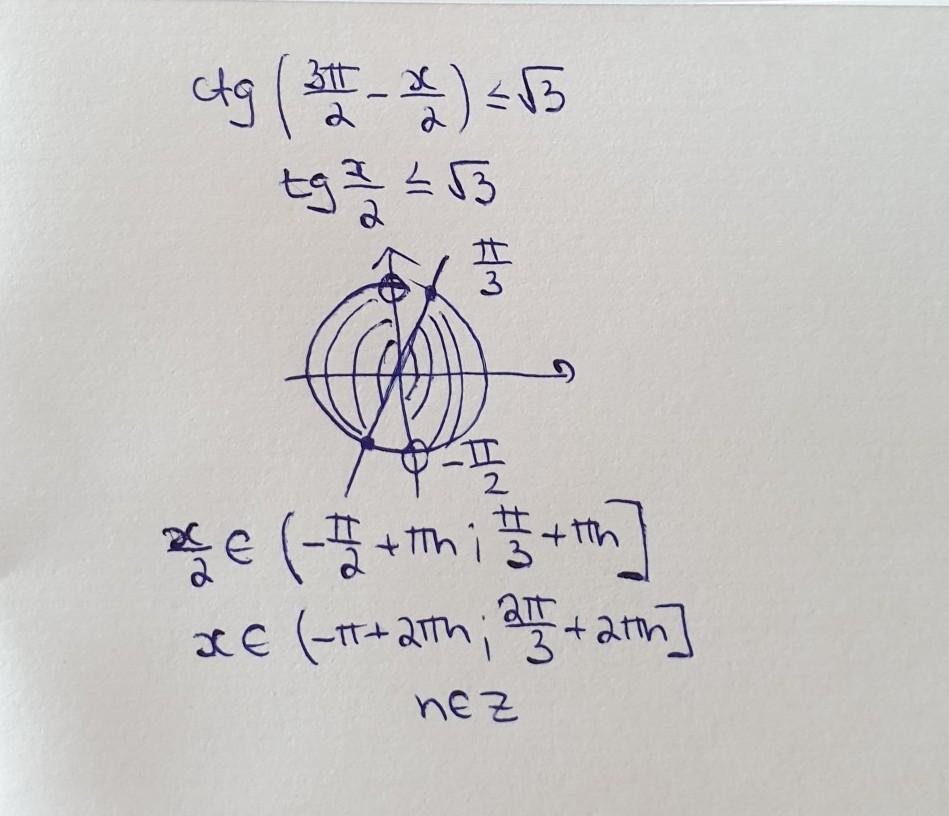 ctg (3π/2 - x/2) ≤ √3
tg x/2 ≤ √3
π/3
-π/2
x/2 ∈ (-π/2 + πn ; π/3 + πn]
x ∈ (-π + 2πn ; 2π/3 + 2πn]
n ∈ Z